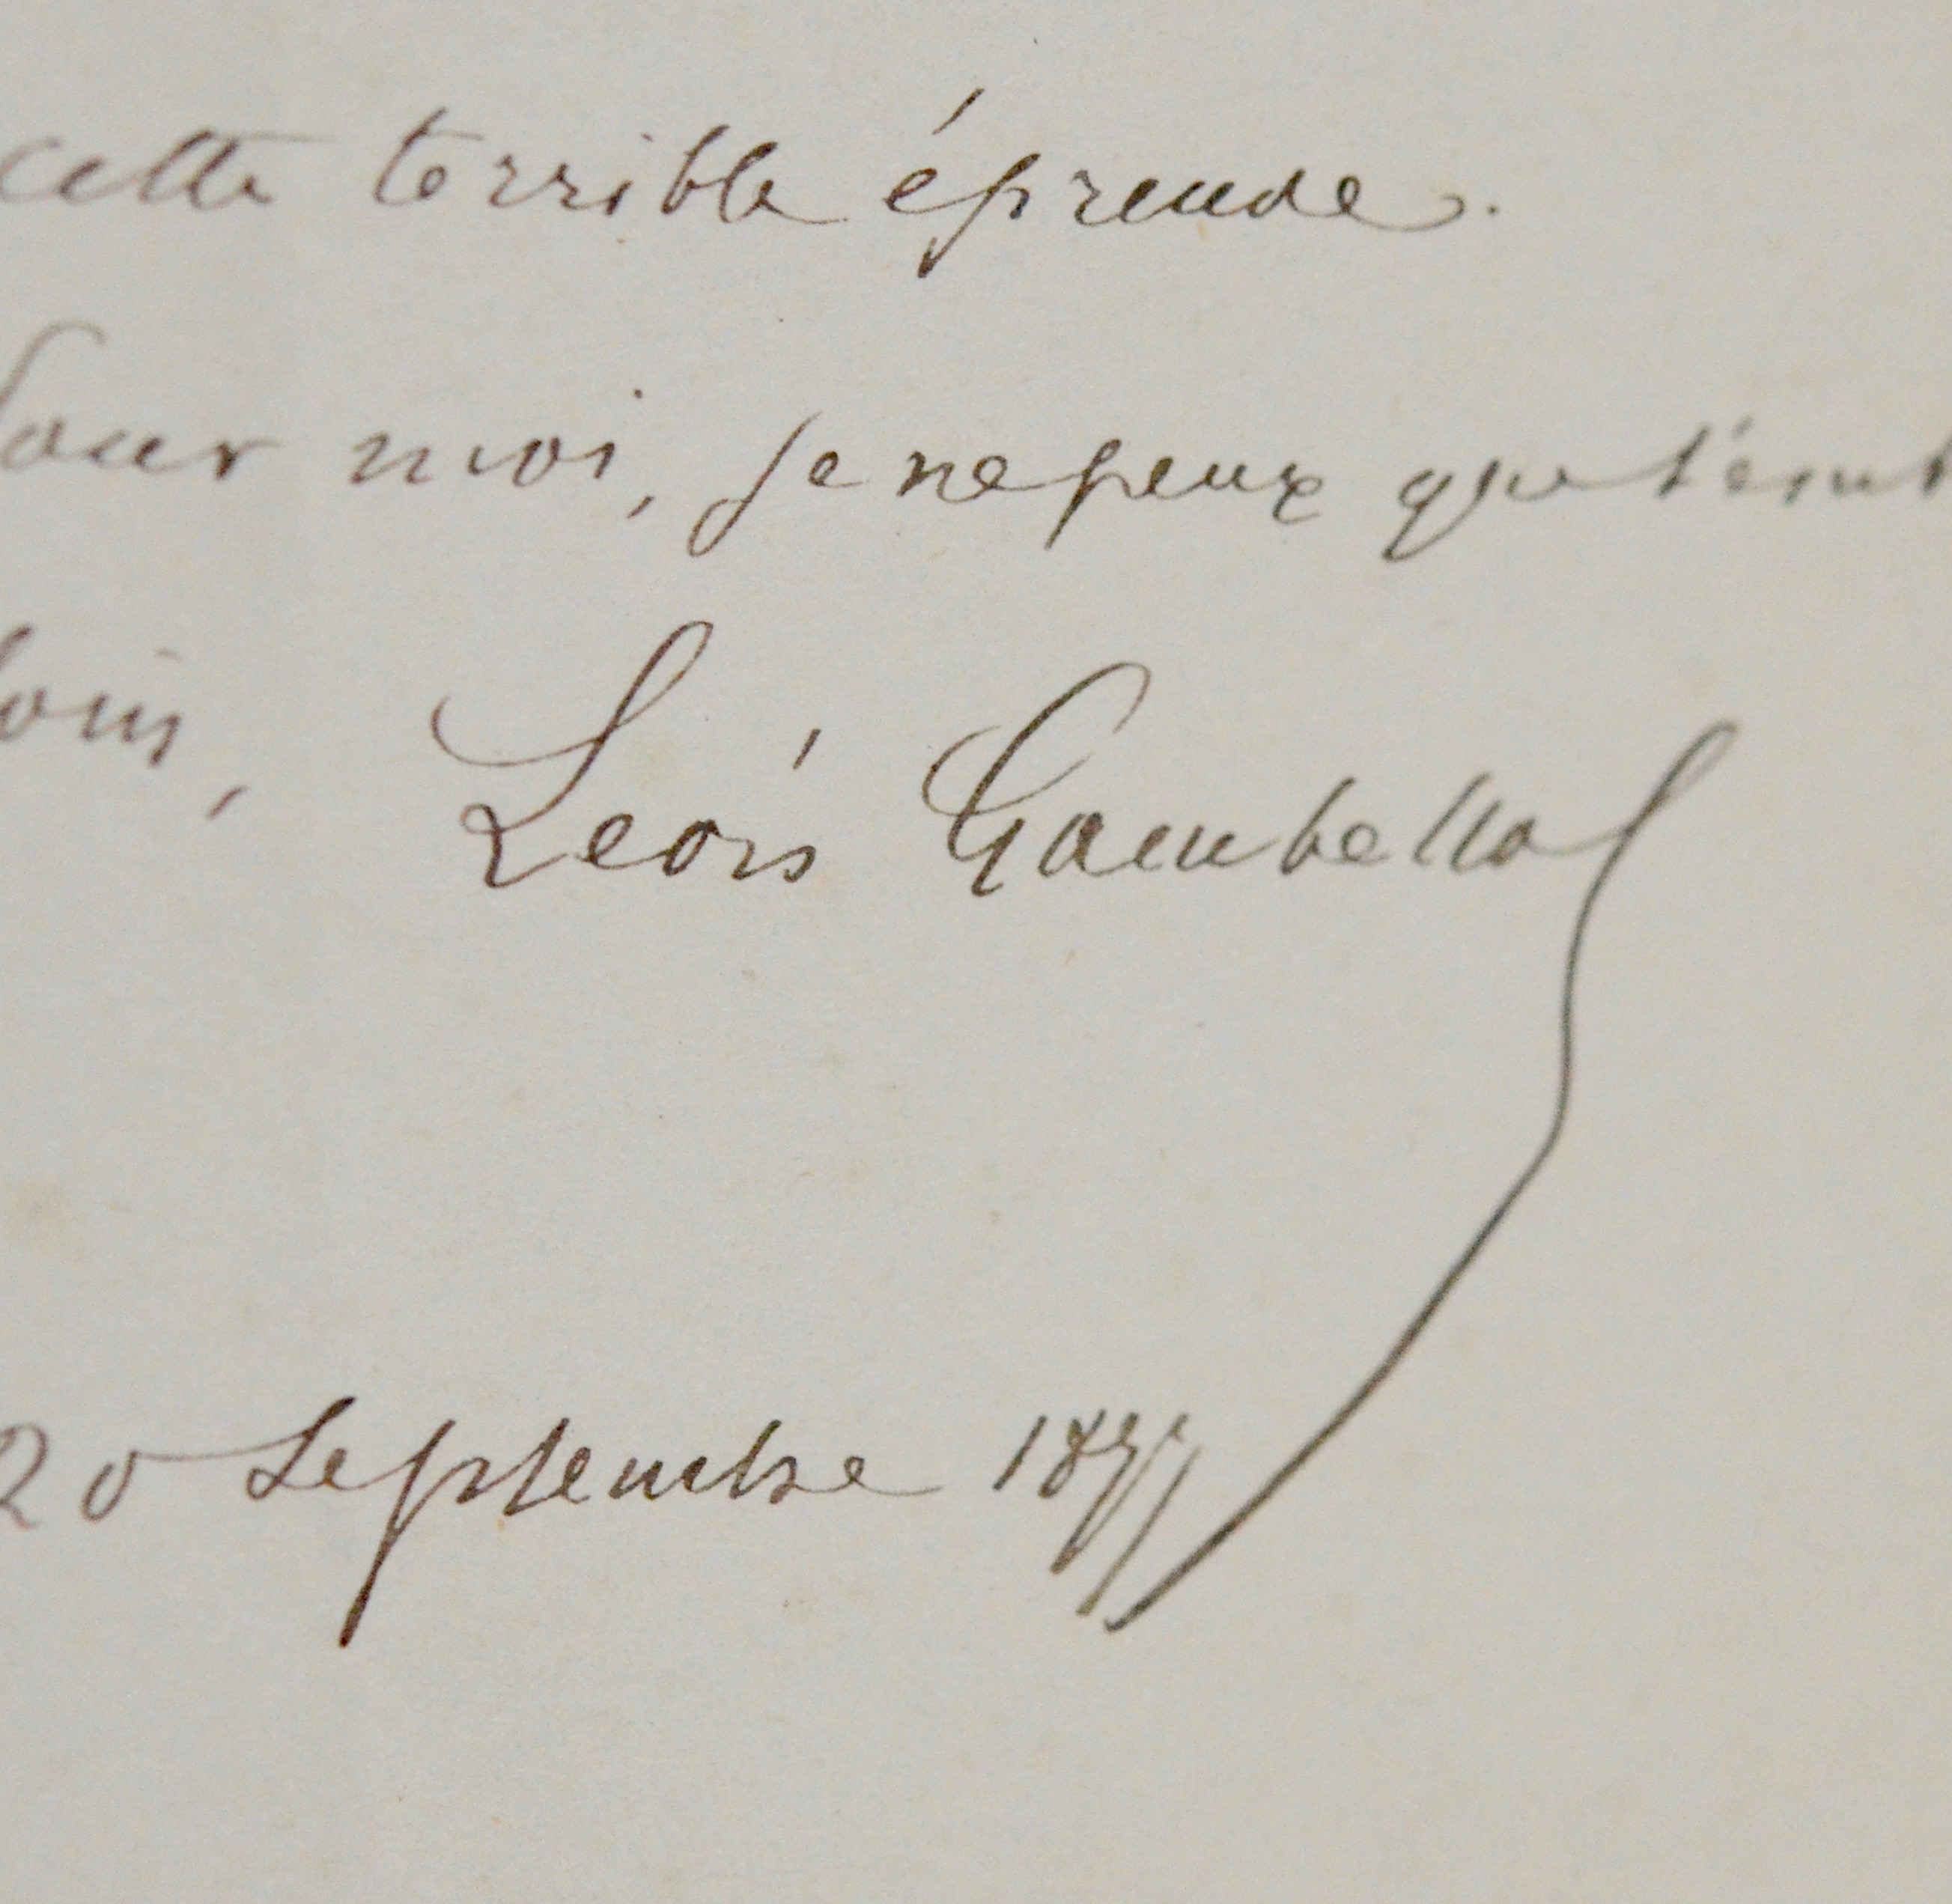 cette terrible épreuve.
Pour moi, je ne peux que t'emb
loin,
Léon Gambetta
20 Septembre 1877